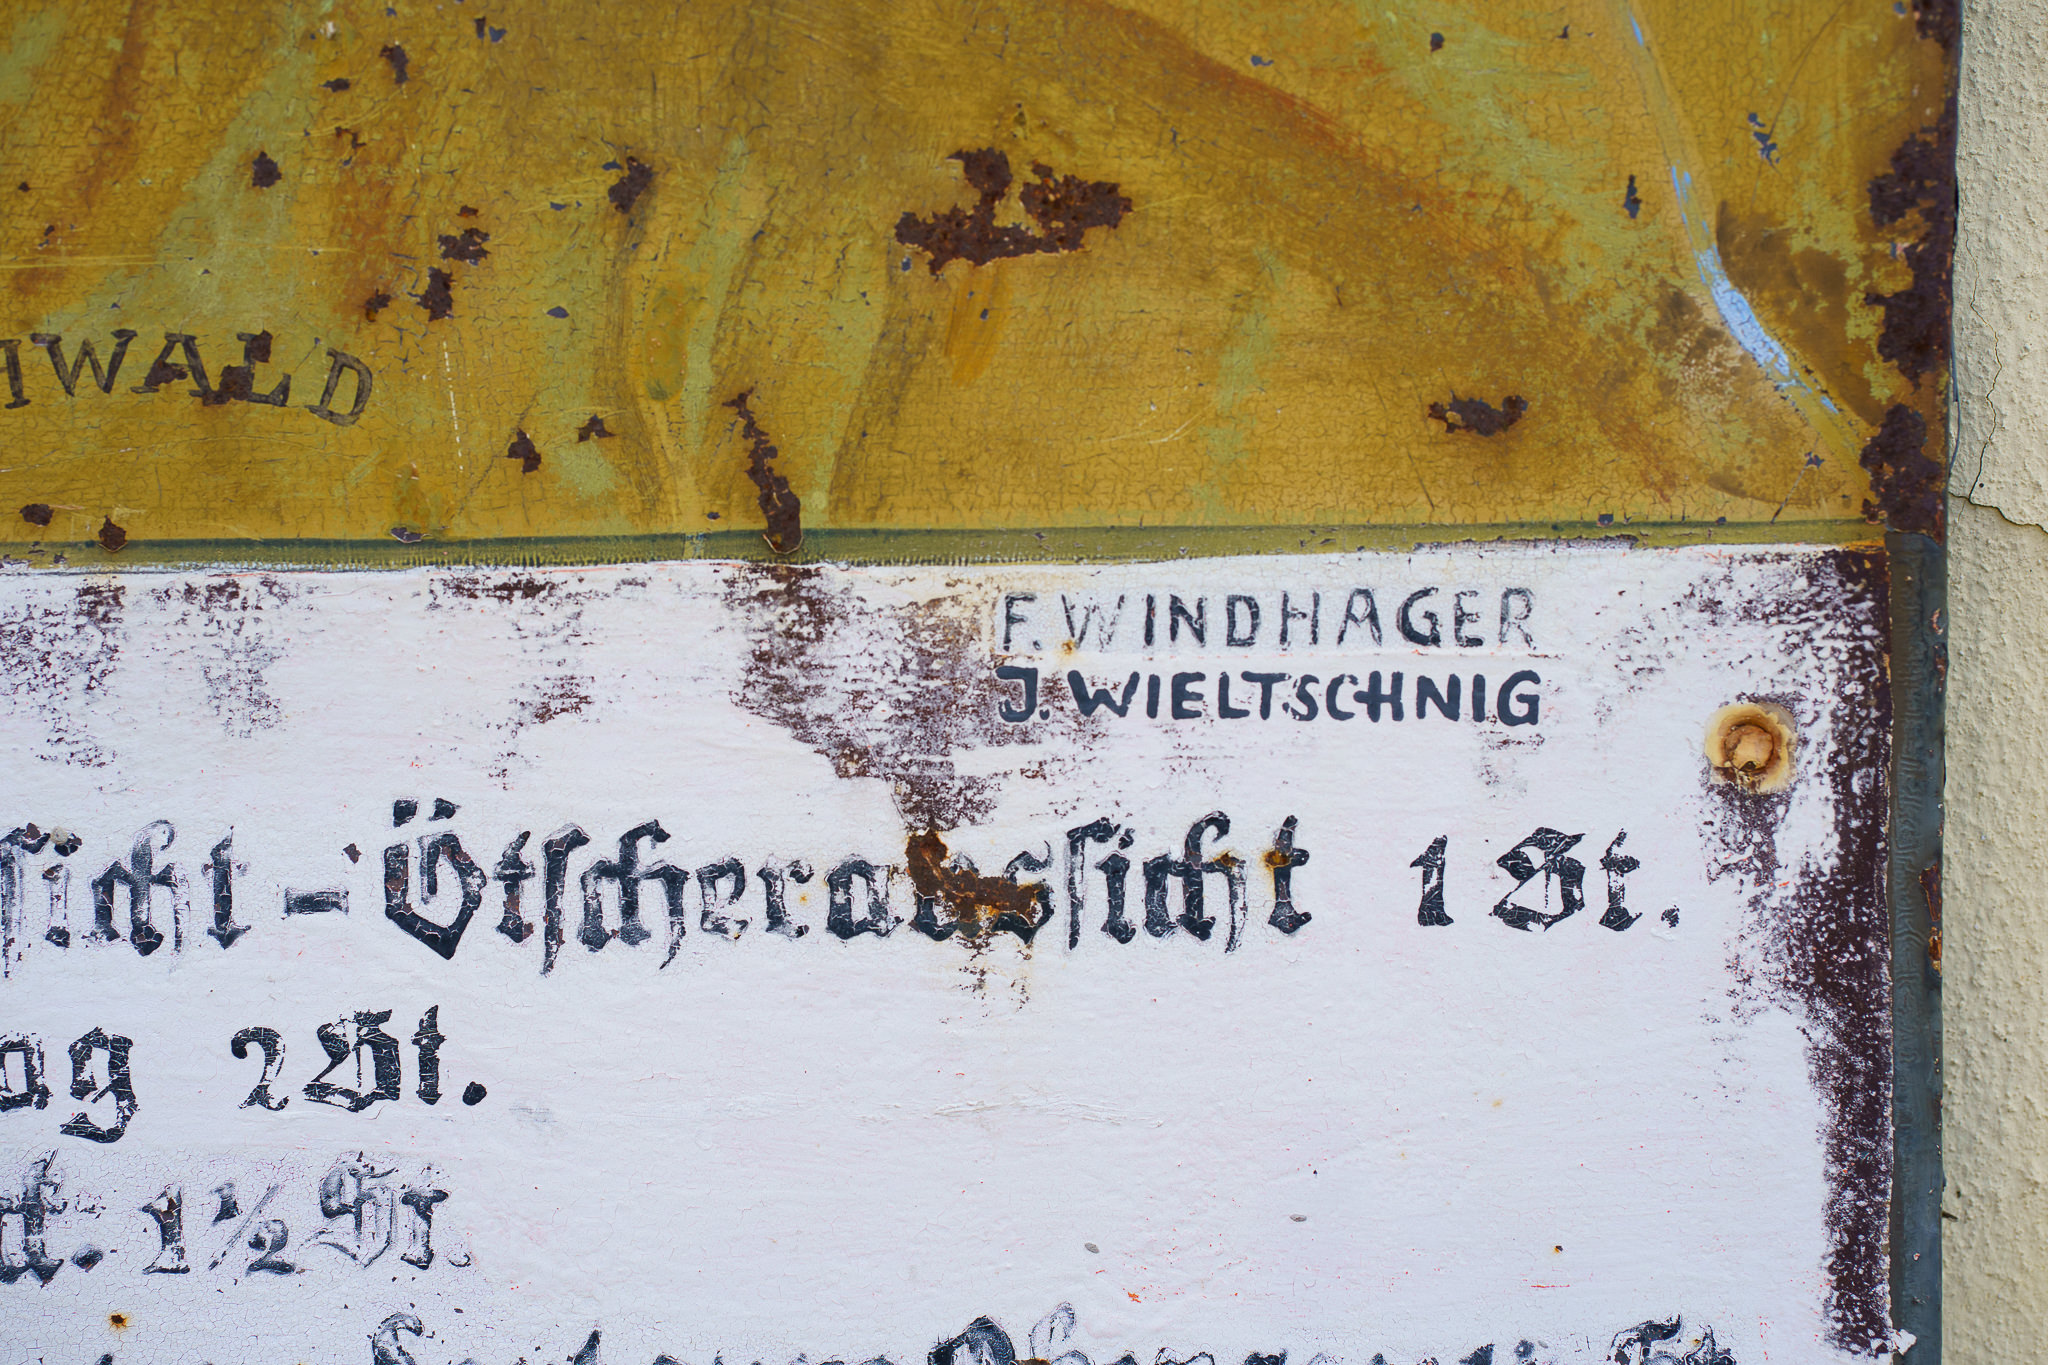 HWALD
F. WINDHAGER
J. WIELTSCHNIG
sicht - Ötscheraussicht 1 St.
ag 2 St.
1½ St.